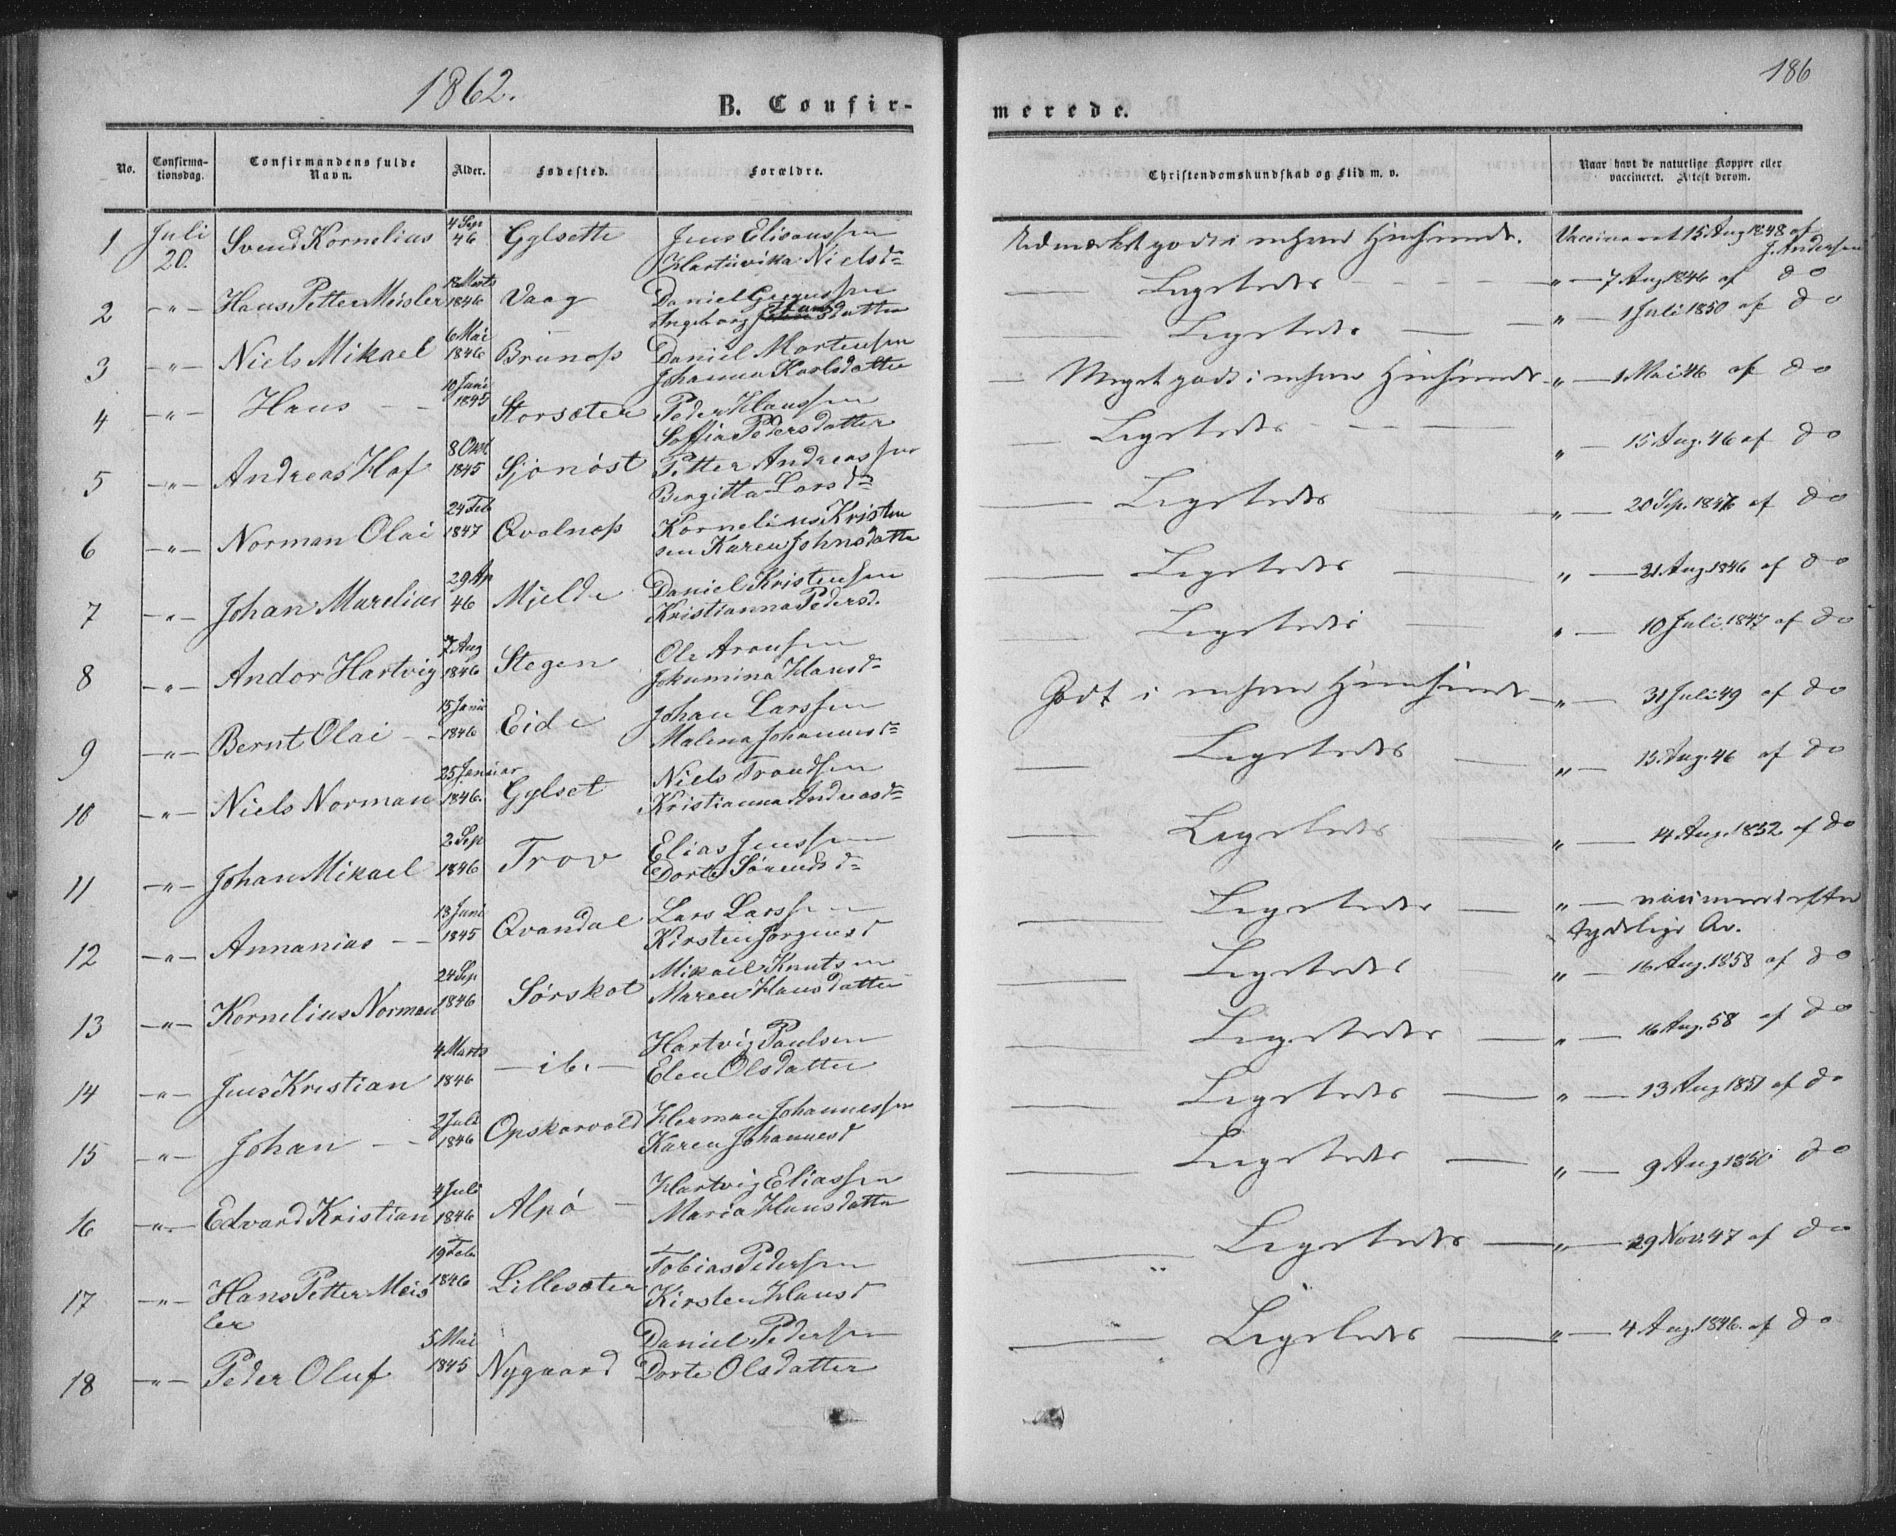 1862.
186
B. Confir-
merede.
No.
Confirma-
tionsdag.
Confirmandens fulde
Navn.
Alder.
Fødested.
Forældre.
Christendomskundskab og Flid m. v.
Naar havt de naturlige Kopper eller
vaccineret. Attest derom.
1 Juli 20. Svend Kornelius 4 Sep 46 Gylsette Jens Elisæussen
Hartvikka Nielsd=
Udmærket godt i enhver Hinseende. Vaccineret 15 Aug 1848 af
J. Andersen
2 -"- Hans Petter Meisler 18 Marts 1846 Vaag Daniel
Ingeborg
Ligeledes " 7 Aug 1846 af do
3 -"- Niels Mikael 6 Mai 1846 Brunøs Daniel Mortensen
Johanna Karlsdatter
Ligeledes " 1 Juli 1850 af do
4 -"- Hans 10 Juni 1845 Storsæter Peder Hanssen
Soffia Pedersdatter
Meget godt i enhver Hinseende " 1 Mai 46 af do
5 -"- Andreas Hof 8 Okt 1845 Sjonøst Petter Andreassen
Bergitta Larsd=
Ligeledes " 15 Aug. 46 af do
6 -"- Norman Olai 24 Feb 1847 Qvalnæs Kornelius Kristen
sen Karen Johnsdatter
Ligeledes " 20 Sep. 1847 af do
7 -"- Johan Marelius 29 Ap 46 Mjelde Daniel Kristensen
Kristianna Pedersd.
Ligeledes " 21 Aug 1846 af do
8 -"- Andor Hartvig 7 Aug 1846 Stegen Ole Aronsen
Jokumina Hansd=
Ligeledes " 10 Juli 1847 af do
9 -"- Bernt Olai 15 Janu 1846 Eide Johan Larssen
Malena Johannesd=
Godt i enhver Hinseende " 31 Juli 49 af do
10 -"- Niels Norman 25 Januar 1846. Gylset Niels Trondsen
Kristianna Andreasd=
Ligeledes " 15 Aug. 46 af do
11 -"- Johan Mikael 2 Sep 1846 Trov Elias Jenssen
Dorte Sørensd=
Ligeledes " 14 Aug. 1852 af do
12 -"- Annanias 13 Juni 1845 Qvandal Lars Larssen
Kirsten Jørgensd
Ligeledes " vaccineret efter
tydelige Ar.
13 -"- Kornelius Norman 24 Sep 1846 Sørskot Mikael Knutsen
Maren Hansdatter
Ligeledes " 16 Aug. 1858 af do
14 -"- Jens Kristian 4 Marts 1846 - ib. - Hartvig Paulsen
Elen Olsdatter
Ligeledes " 16 Aug. 58 af do
15 -"- Johan 2 Juli 1846 Opskarvold Herman Johannessen
Karen Johannesd
Ligeledes " 13 Aug 1851 af do
16 -"- Edvard Kristian 4 Juli 1846 Alpø Hartvig Eliassen
Maria Hansdatter
Ligeledes " 9 Aug 1850 af do
17 -"- Hans Petter Meis
ler 19 Feb 1846 Lillesæter Tobias Pedersen
Kirsten Hansd
Ligeledes " 29 Nov. 47 af do
18 -"- Peder Oluf 5 Mai 1845 Nygaard Daniel Pedersen
Dorte Olsdatter
Ligeledes " 4 Aug. 1846. af do